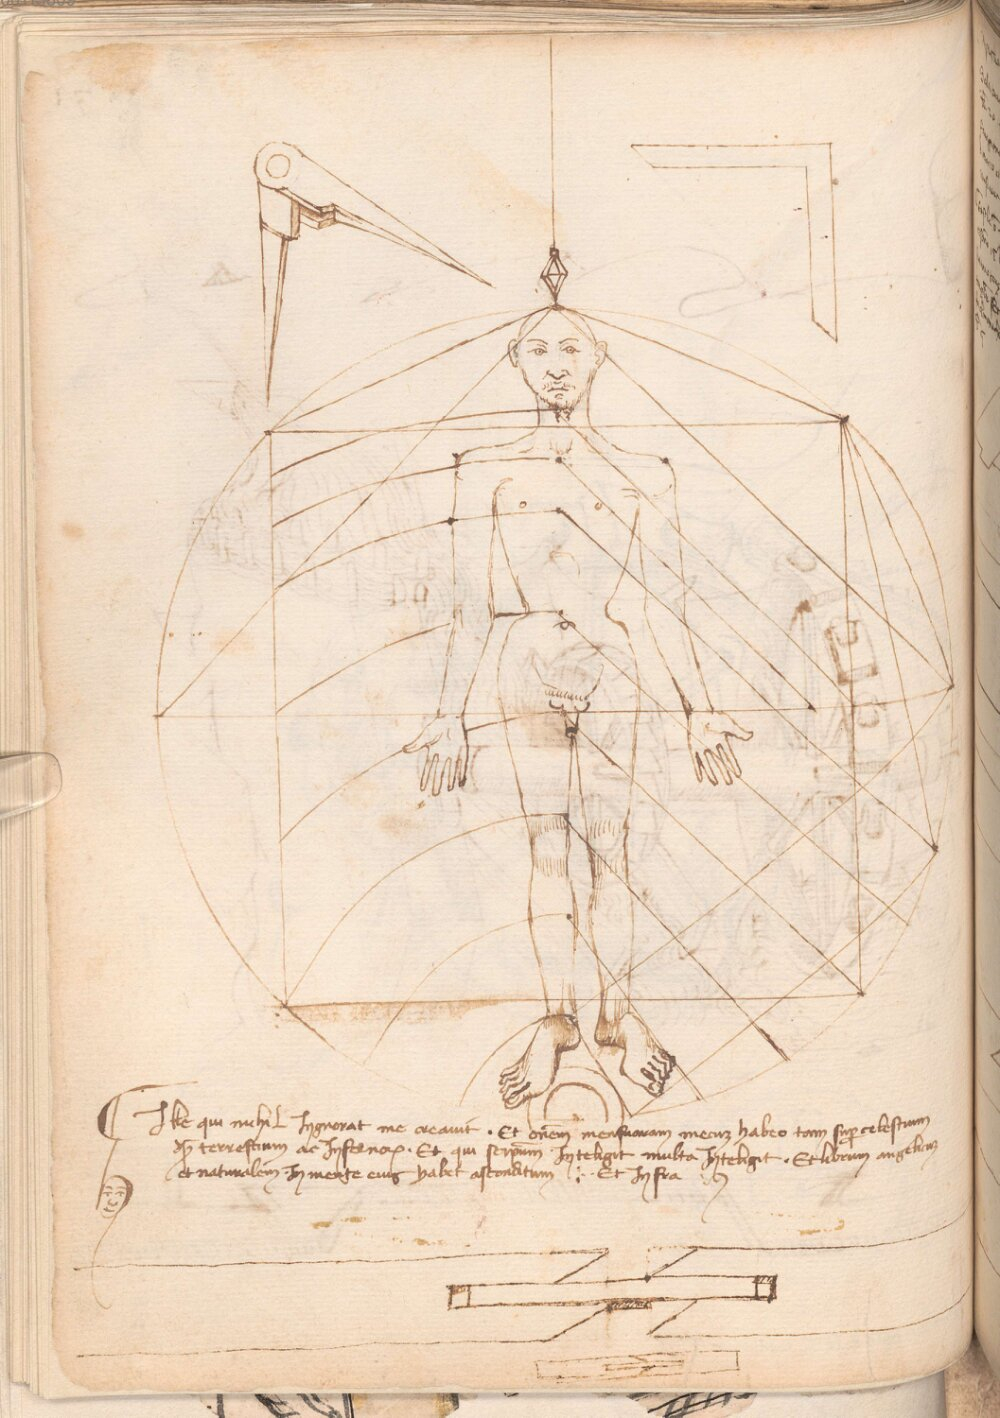 Ille qui nichil Ingnorat me creavit · Et onēm mensuram mecuz habeo tam supcelestium
terrestium ac Infernoꝝ · Et qui seipsum Inteligit multa Inteligit · Et librum angelicum
et naturalem In mente eius habet asconditum ⁖ Et Infra